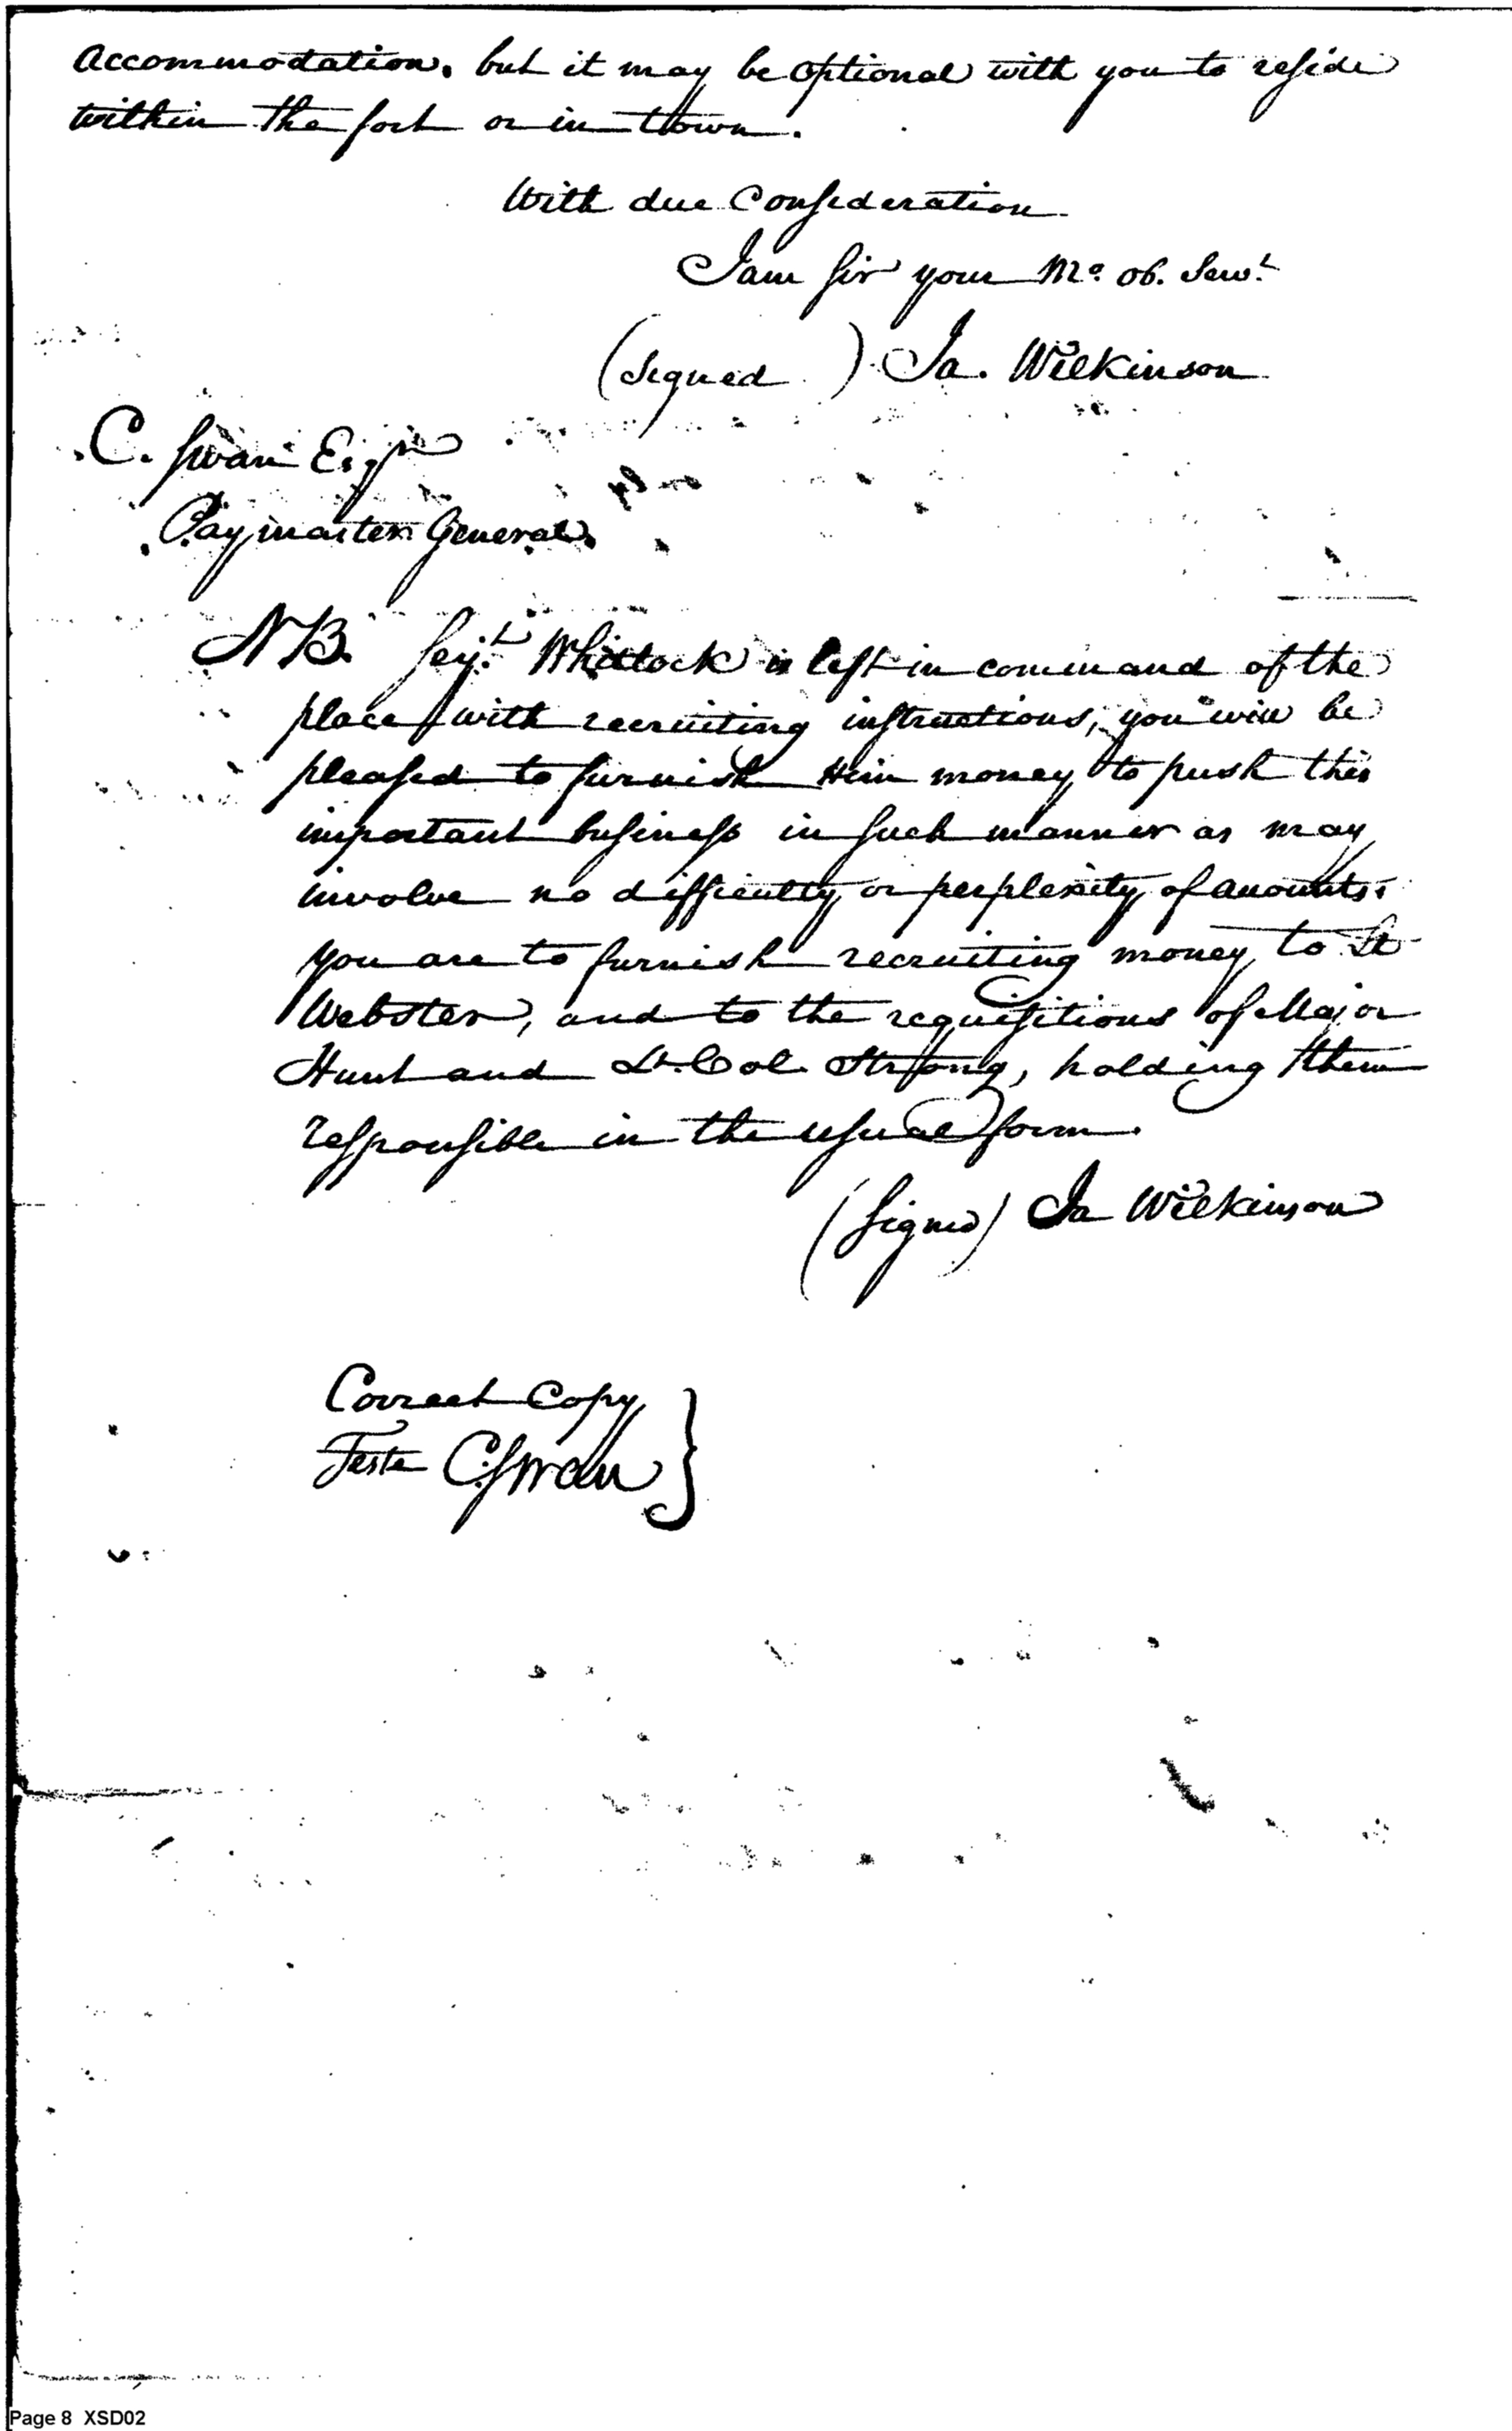 Accommodation, but it may be optional with you to reside
within the fort or in town.
With due Consideration
I am Sir your Mo. Ob. Servt
(Signed ) Ja. Wilkinson
C. Swan Esqr
Paymaster General.
NB. Serjt. Whitlock is left in command of the
place with recruiting instructions, you will be
pleased to furnish Him money to push this
important business in such manner as may
involve no difficulty or perplexity of accounts.
you are to furnish recruiting money to Lt
Webster, and to the requisitions of Major
Hunt and Lt. Col. Strong, holding them
responsible in the usual form.
(Signed) Ja Wilkinson
Correct Copy
Teste C. Swan }
Page 8 XSD02